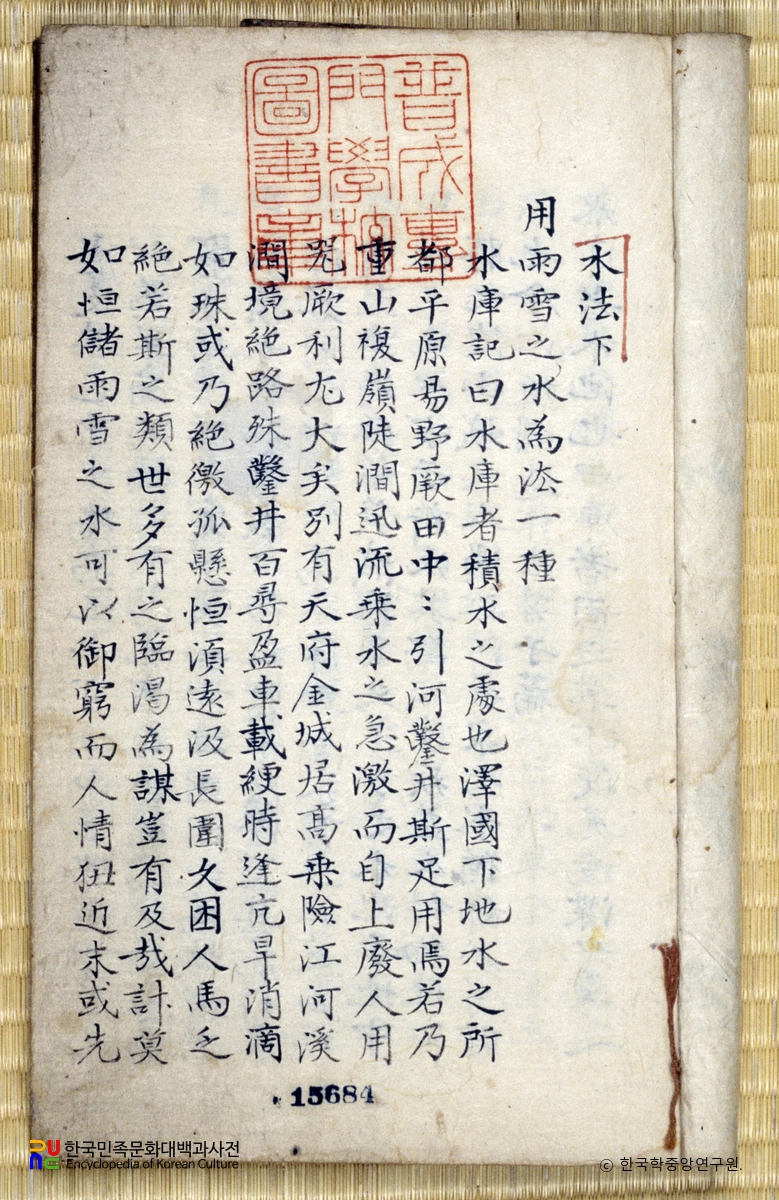 普成專
門學校
圖書章
水法下
用雨雪之水為法一種
水庫記曰水庫者積水之處也澤國下地水之所
都平原易野厥田中〻引河鑿井斯足用焉若乃
重山複嶺陡澗迅流乘水之急激而自上廢人用
器厥利尤大矣別有天府金城居高乘險江河溪
澗境絕路殊鑿井百尋盈車載綆時逢亢旱消滴
如珠或乃絕徼孤懸恒須遠汲長圍久困人馬乏
絕若斯之類世多有之臨渴為謀豈有及哉計莫
如恒儲雨雪之水可以御窮而人情狃近末或先
15684
한국민족문화대백과사전
Encyclopedia of Korean Culture
© 한국학중앙연구원.